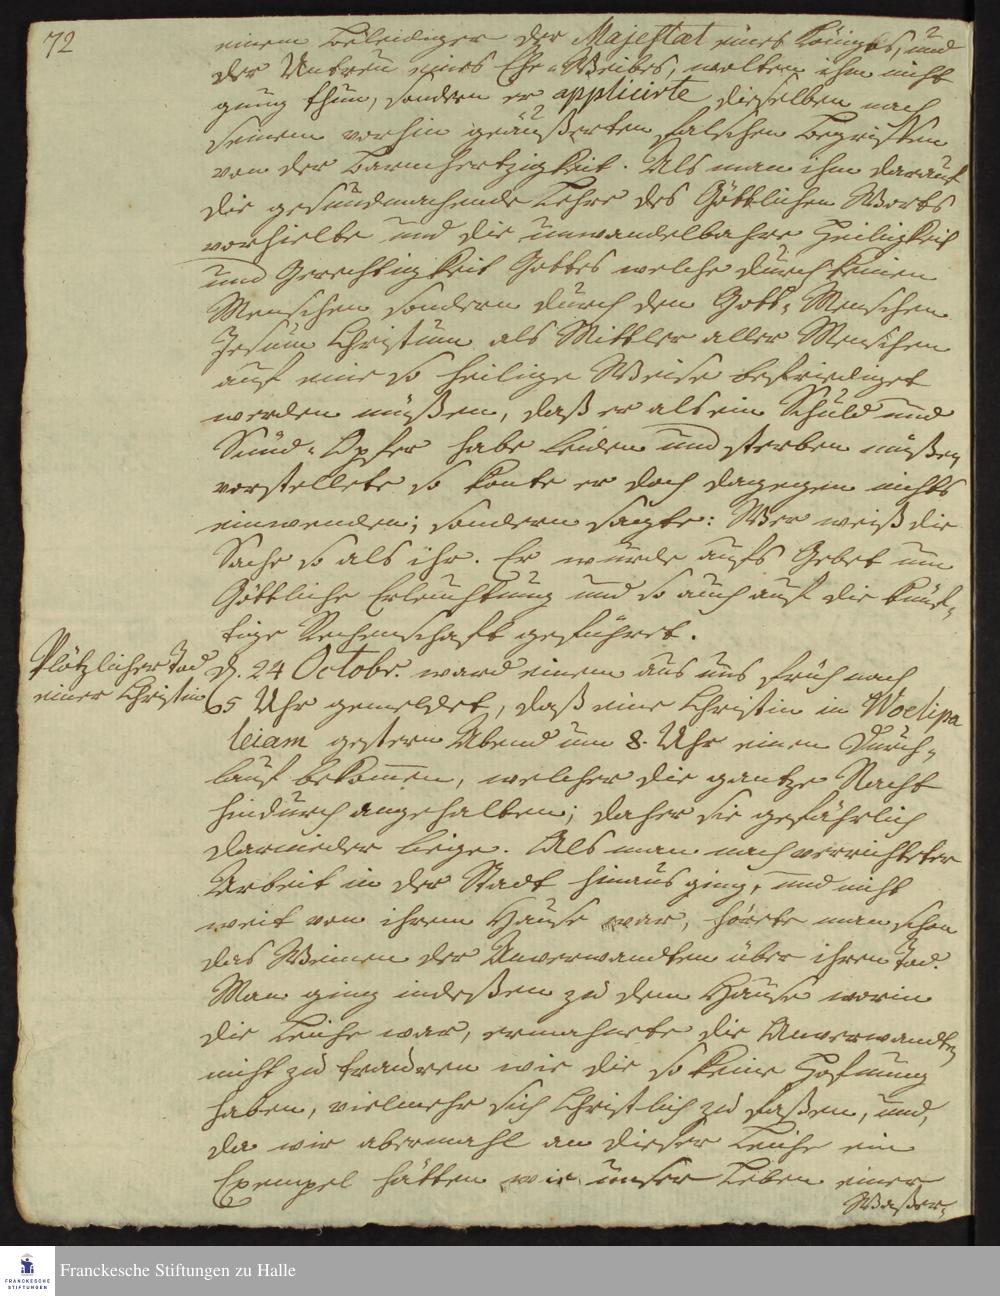 72
einem Beleidiger der Majestaet eines Königes, und
der Untreu eines Ehe-Weibes, wolten ihm nicht
gnug thun, sondern er applicirte dieselben nach
seinem vorhin geäußerten falschen Begriffen
von der Barmhertzigkeit. Als man ihm darauf
die gesundmachende Lehre des Göttlichen Worts
vorhielte und die unwandelbahre Heiligkeit
und Gerechtigkeit Gottes welche durch keinen
Menschen sondern durch den Gott-Menschen
Jesum Christum als Mittler aller Menschen
auf eine so heilige Weise befriediget
werden müßen, daß er als ein Schuld und
Sünd-Opfer habe leiden und sterben müßen
vorstellete so konte er doch dagegen nichts
einwenden; sondern sagte: Wer weiß die
Sache so als ihr. Er wurde aufs Gebet um
Göttliche Erleuchtung und so auch auf die künf-
tige Rechenschaft geführet.
Plötzlicher Tod
einer Christin
d. 24 Octobr. ward einem aus uns früh nach
5 Uhr gemeldet, daß eine Christin in Woelipa
leiam gestern Abend um 8. Uhr einen Durch-
lauf bekommen, welcher die gantze Nacht
hindurch angehalten; daher sie gefährlich
darnieder liege. Als man nach verrichteter
Arbeit in der Stadt hinaus ging, und nicht
weit von ihrem Hause war, hörete man schon
das Weinen der Anverwandten über ihren Tod.
Man ging indeßen zu dem Hause worin
die Leiche war, ermahnete die Anverwandten
nicht zu trauren wie die so keine Hofnung
haben, vielmehr sich Christlich zu faßen, und,
da wir abermahl an dieser Leiche ein
Exempel hätten wie unser Leben einer
Waßer-
Franckesche Stiftungen zu Halle
FRANCKESCHE
STIFTUNGEN